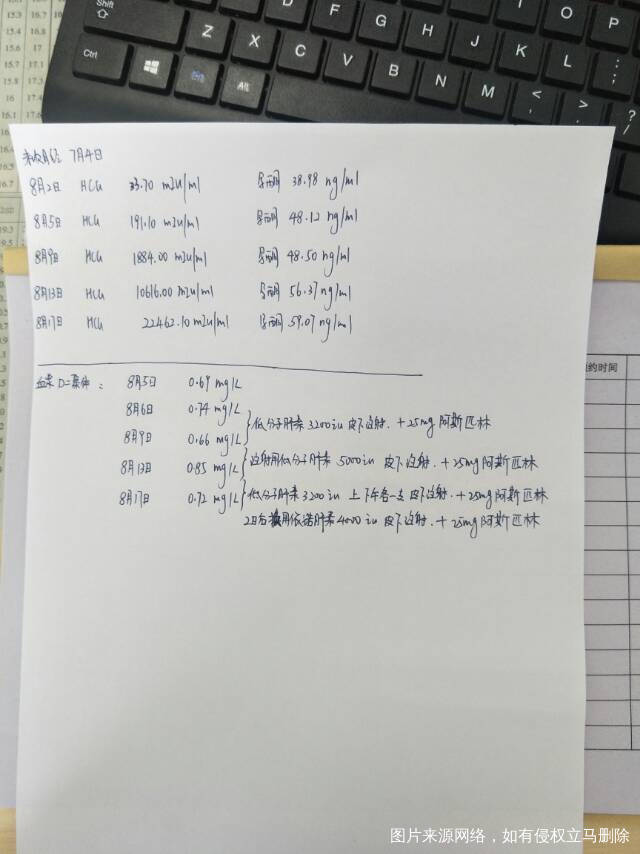 Shift
Ctrl
Alt
Z
X
C
V
B
N
M
D
F
G
H
J
K
L
I
O
P
末次月经 7月4日
8月2日 HCG 33.70 mIu/ml 孕酮 38.98 ng/ml
8月5日 HCG 191.10 mIu/ml 孕酮 48.12 ng/ml
8月9日 HCG 1884.00 mIu/ml 孕酮 48.50 ng/ml
8月13日 HCG 10616.00 mIu/ml 孕酮 56.37 ng/ml
8月17日 HCG 22462.10 mIu/ml 孕酮 59.07 ng/ml
血浆D二聚体: 8月5日 0.69 mg/L
8月6日 0.74 mg/L
低分子肝素3200iu 皮下注射. +25mg阿斯匹林
8月9日 0.66 mg/L
8月13日 0.85 mg/L 注射用低分子肝素 5000iu 皮下注射. +25mg阿斯匹林
8月17日 0.72 mg/L 低分子肝素3200iu 上下午各一支 皮下注射. +25mg阿斯匹林
2日后改用依诺肝素4000iu 皮下注射. +25mg阿斯匹林
约时间
图片来源网络，如有侵权立马删除